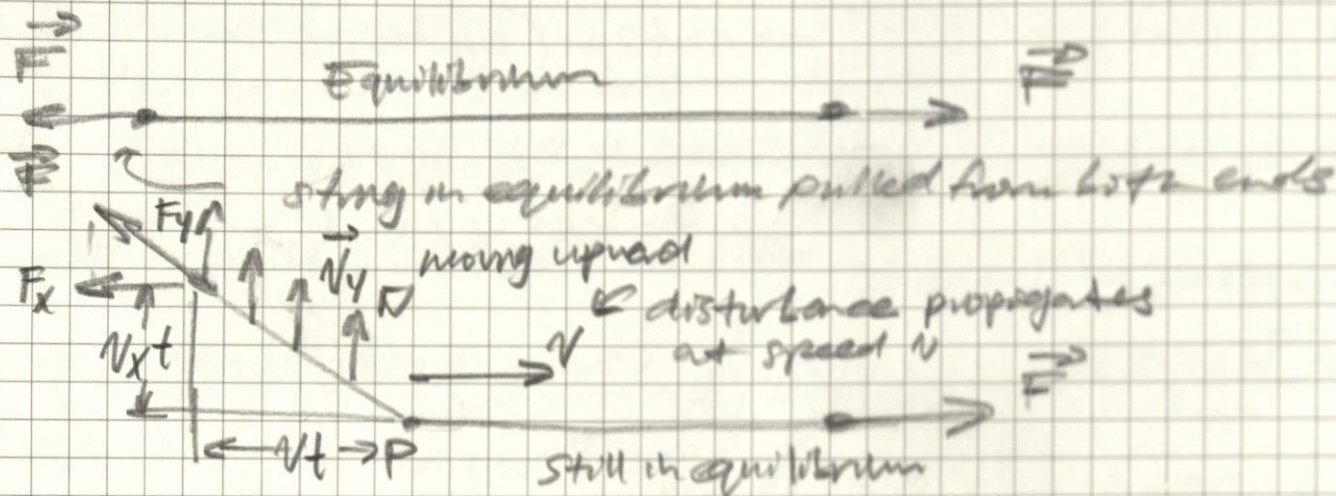 F
Equilibrium
F
F
string in equilibrium pulled from both ends
Fy
Vy moving upward
Fx
disturbance propagates
at speed v
Vxt
V
F
Vt P
Still in equilibrium